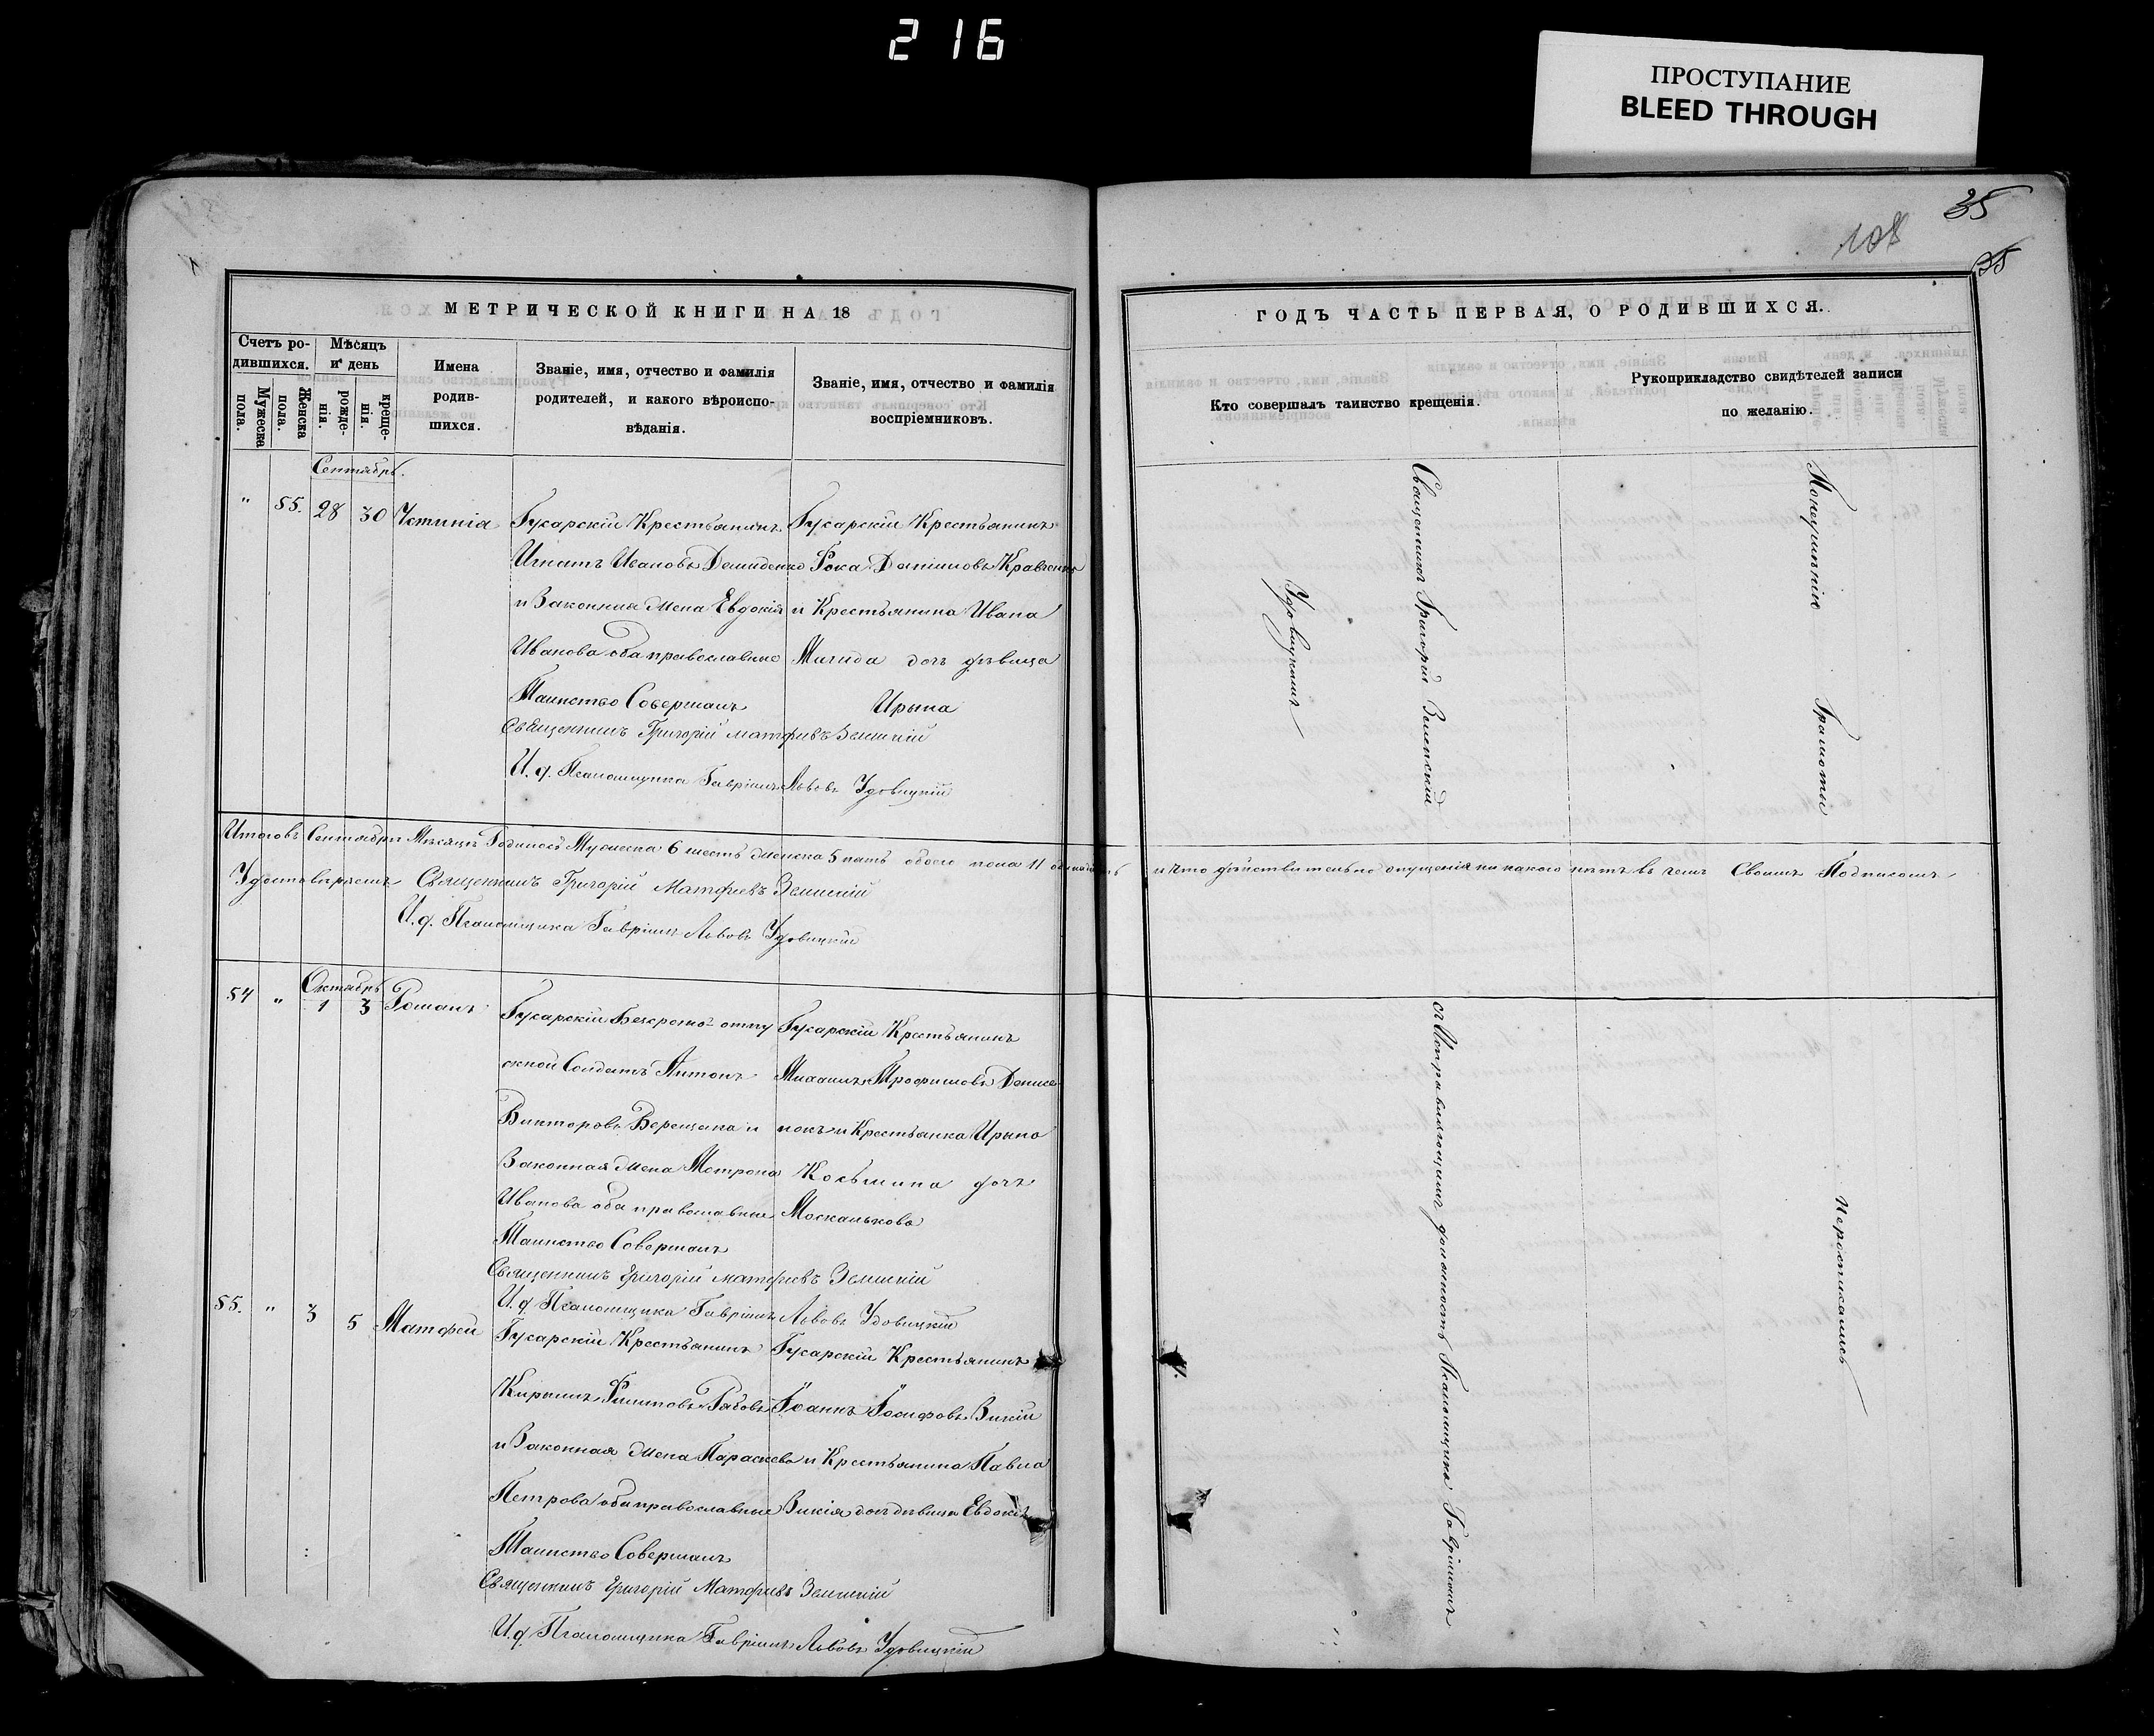 216
ПРОСТУПАНИЕ
BLEED THROUGH
35
108
35
МЕТРИЧЕСКОЙ КНИГИ НА 18
Счетъ ро-
дившихся.
Мужеска
пола.
Женска
пола.
Мѣсяцъ
и день
рожде-
нія.
креще-
нія
Имена
родив-
шихся.
Званіе, имя, отчество и фамилія
родителей, и какого вѣроиспо-
вѣданія.
Званіе, имя, отчество и фамилія
воспріемниковъ.
Сентябрь.
" 55. 28 30 Устинія
Гусарскій Крестьянинъ
Игнатъ Ивановъ Демиденко
и Законная жена Евдокія
Иванова оба православные
Таинство Совершалъ
Гусарскій Крестьянинъ
Фока Даніиловъ Кравченко
и Крестьянина Ивана
дочь дѣвица
Ирына
Священникъ Григорій Матфіевъ
И. д. Псаломщика Гавріилъ Львовъ Удовицкій
Итоговъ Сентябрѣ Мѣсяцѣ Родилось Мужеска 6 шесть женска 5 пять обоего пола 11
Удостовѣряемъ Священникъ Григорій Матфіевъ
И. д. Псаломщика Гавріилъ Львовъ Удовицкій
Октябрь
54 " 1 3 Романъ
Гусарскій Безсрочно отпу
скной Солдатъ Антонъ
Викторовъ Верещака и
Законная жена Матрона
Иванова оба православные
Таинство Совершалъ
Гусарскій Крестьянинъ
Михаилъ Трофимовъ Денисе
нокъ и Крестьянка Ирына
Косьмина дочь
Москалькова
Священникъ Григорій Матфіевъ
И. д. Псаломщика Гавріилъ Львовъ Удовицкій
55. " 3 5 Матфей
Гусарскій Крестьянинъ
Кирылъ Филиповъ
и Законная жена Параскева
Петрова оба православные
Таинство Совершалъ
Гусарскій Крестьянинъ
Іоаннъ Іосифовъ
и Крестьянина Павла
дочь дѣвица Евдокія
Священникъ Григорій Матфіевъ
И. д. Псаломщика Гавріилъ Львовъ Удовицкій
ГОДЪ ЧАСТЬ ПЕРВАЯ, О РОДИВШИХСЯ.
Кто совершалъ таинство крещенія.
Рукоприкладство свидѣтелей записи
по желанію.
Священникъ Григорій
съ Исправляющимъ должность Псаломщика Гавріиломъ
Удовицкимъ
По неумѣнію Грамоты
Нерописались
и что дѣйствительно опущенія ни какого нѣтъ въ чемъ Своимъ Подписомъ